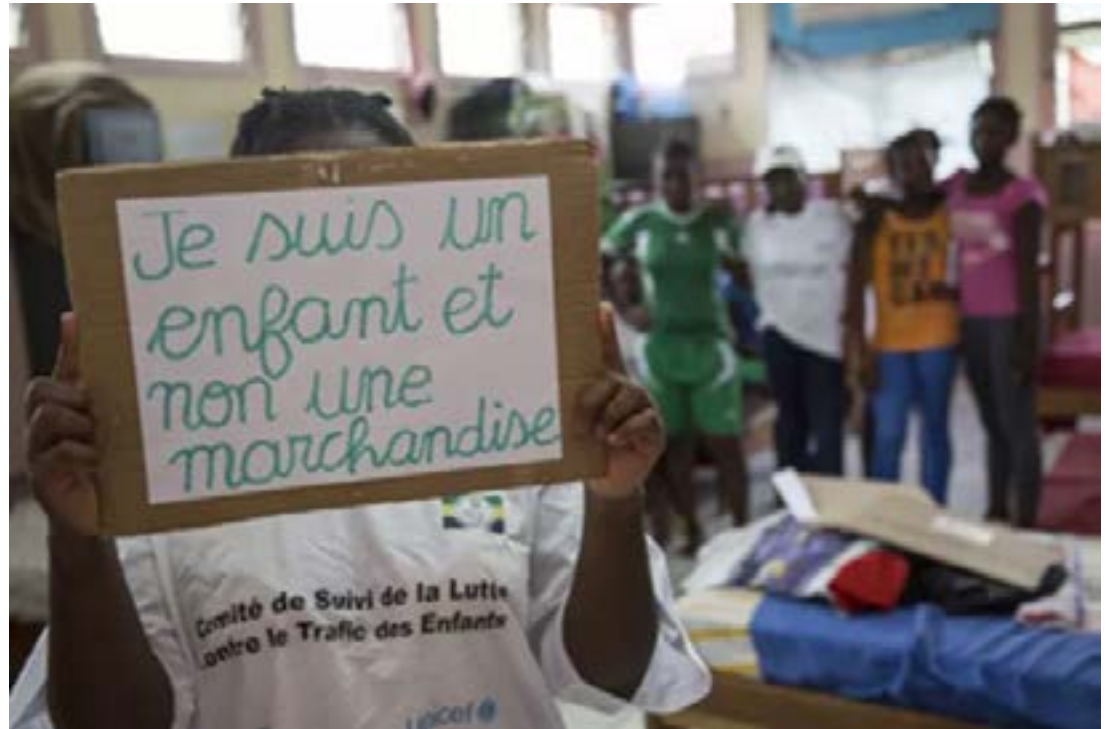 Je suis un
enfant et
non une
marchandise
Comité de Suivi de la Lutte
contre le Trafic des Enfants
unicef